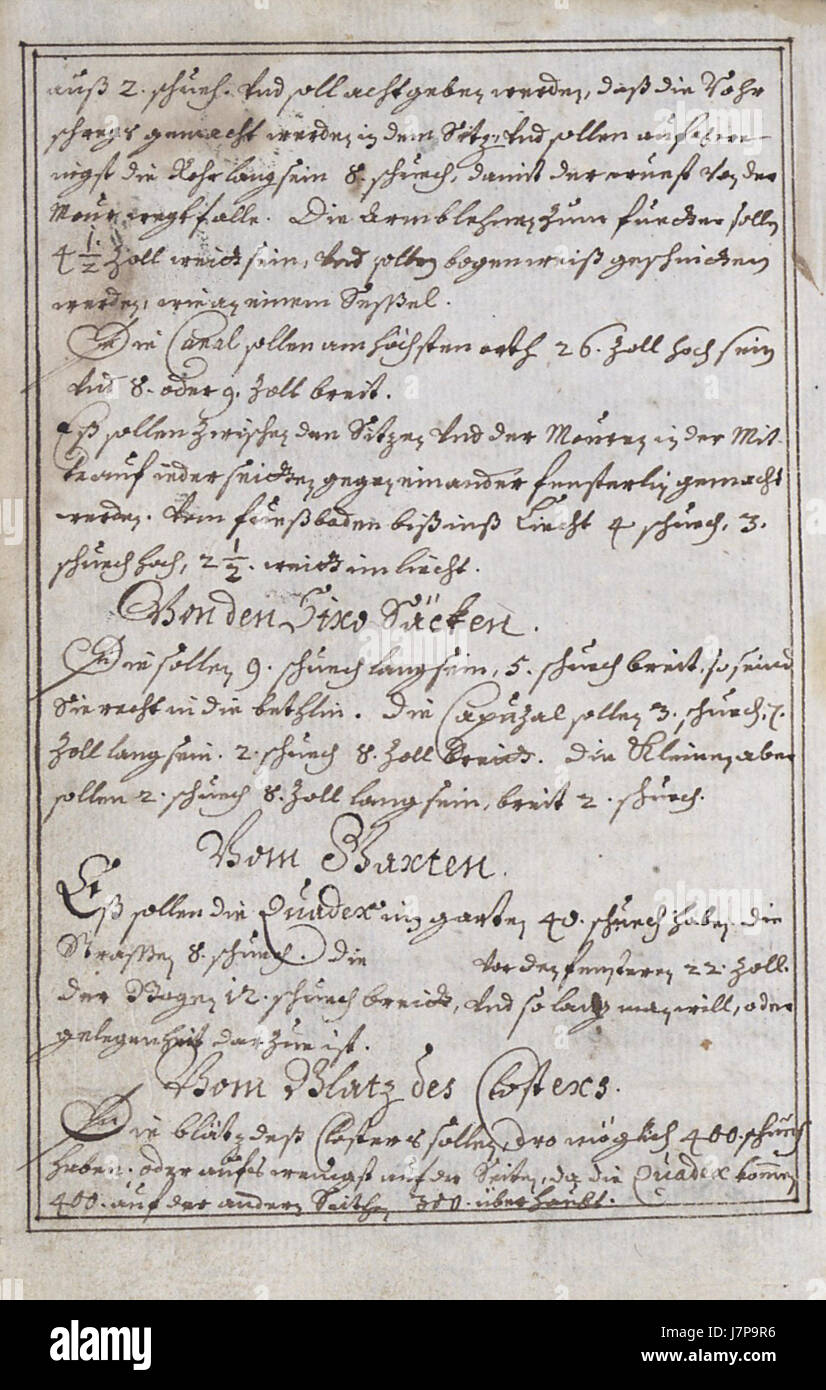 auß 2. schueh. Vnd soll acht geben werden, daß die Rohr
schregs gemacht werden in dem Sitz, Vnd sollen aufs we-
nigst die Rohr lang sein 8. schuech, damit der wuest von der
Maur wegkfalle. Die Armblehnen zum sollen
4 1/2 Zoll weith sein, Vnd sollen bogenweiß geschnitten
werden, wie an einem Seßel.
Die Canal sollen am höchsten orth 26. Zoll hoch sein
Vnd 8. oder 9. Zoll breit.
Eß sollen zwischen den Sitzen Vnd der Mauren in der Mit-
te auf ieder seithen gegen einander fensterlin gemacht
werden. Vom fueßboden biß inß Liecht 4 schuech, 3.
schuech hoch, 2 1/2. weith im liecht.
Von den Säcken.
Die sollen 9. schuech lang sein, 5. schuech breit, so seind
Sie recht in die bethlin. Die Capuzal sollen 3. schuech, 7.
Zoll lang sein. 2. schuech 8. Zoll breith. Die Kleinen aber
sollen 2. schuech 8. Zoll lang sein, breit 2. schuech.
Vom Garten.
Eß sollen die Quader im garten 40. schuech haben. die
Strassen 8. schuech. die vor den fensteren 22. Zoll.
der Bogen 12. schuech breith, Vnd so lang man will, oder
gelegenheit darzue ist.
Vom Blatz des Closters.
Die blätz deß Closters sollen, wo möglich 400. schuech
haben. oder aufs wenigst auf der Seiten, da die Quader kommen
400. auf der andern Seithen 300. überhaubt.
alamy
J7P9R6
www.alamy.com